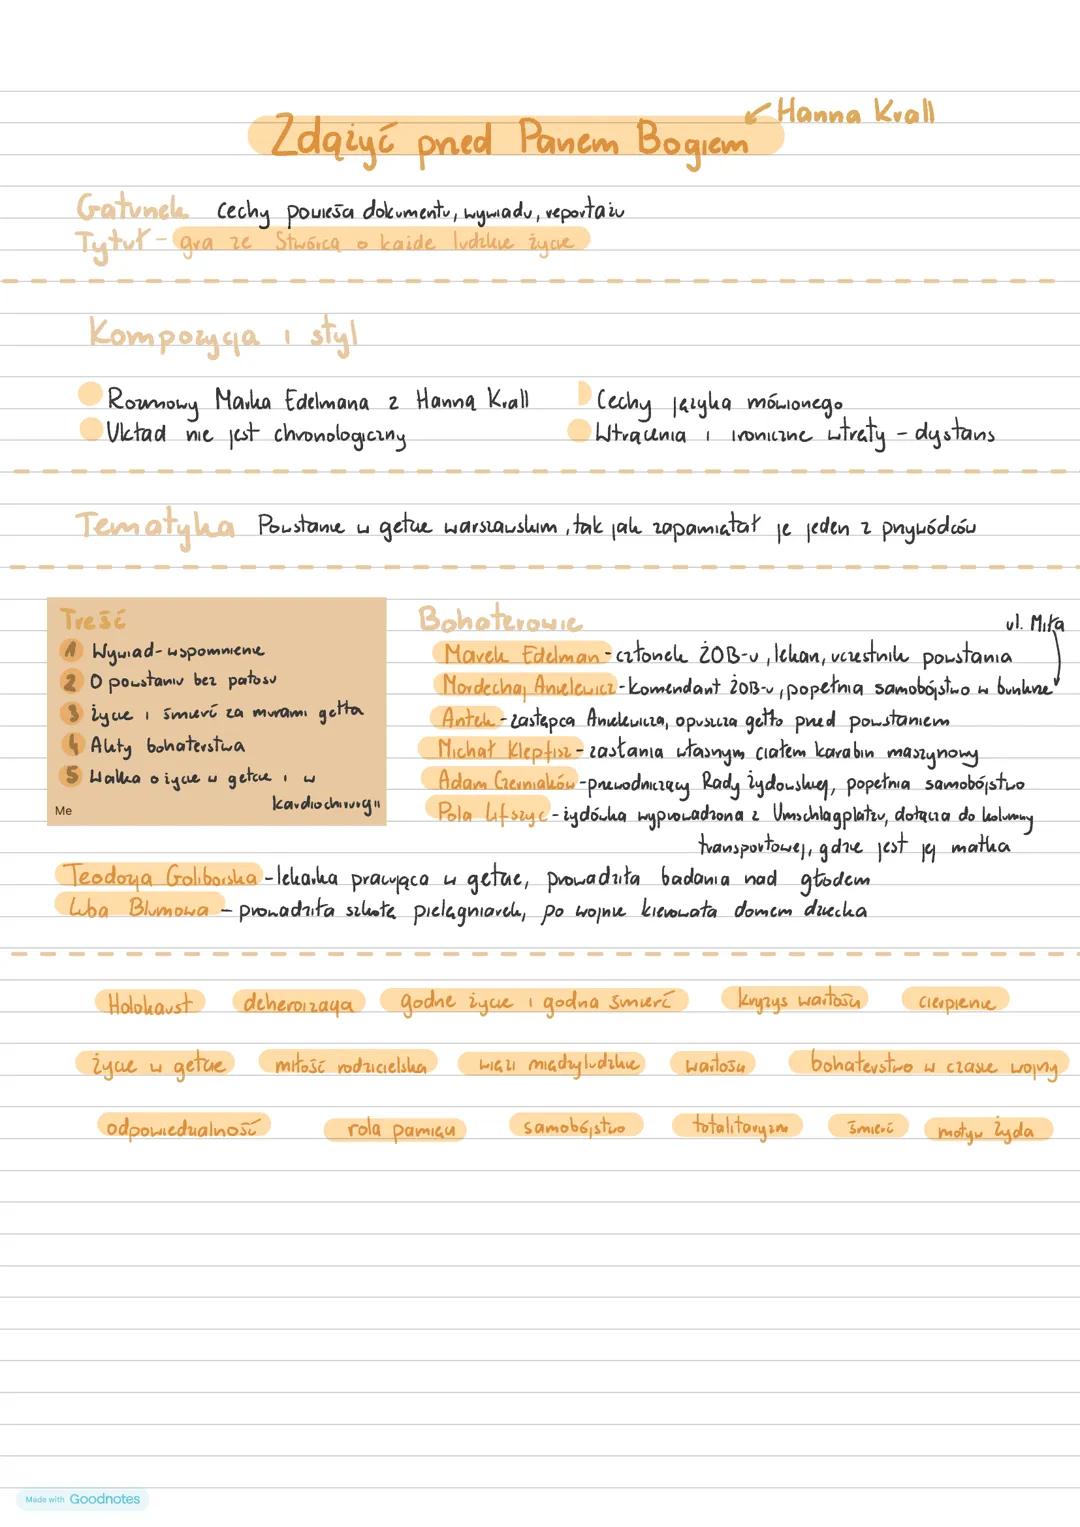 Hanna Krall
Zdążyć przed Panem Bogiem
Gatunek cechy powieści dokumentu, wywiadu, reportażu
Tytuł - gra ze Stwórcą o każde ludzkie życie
Kompozycja i styl
Rozmowy Marka Edelmana z Hanną Krall
Układ nie jest chronologiczny
Cechy języka mówionego
Wtrącenia i ironiczne wtręty - dystans
Tematyka Powstanie w getcie warszawskim, tak jak zapamiętał je jeden z przywódców
Treść
1 Wywiad - wspomnienie
2 O powstaniu bez patosu
3 życie i śmierć za murami getta
4 Akty bohaterstwa
5 Walka o życie w getcie i w
kardiochirurgii
Me
Bohaterowie
ul. Miła
Marek Edelman - członek ŻOB-u, lekarz, uczestnik powstania
Mordechaj Anielewicz - komendant ŻOB-u, popełnia samobójstwo w bunkrze
Antek - zastępca Anielewicza, opuszcza getto przed powstaniem
Michał Klepfisz - zasłania własnym ciałem karabin maszynowy
Adam Czerniaków - przewodniczący Rady Żydowskiej, popełnia samobójstwo
Pola Lifszyc - żydówka wyprowadzona z Umschlagplatzu, dołącza do kolumny
transportowej, gdzie jest jej matka
Teodozja Goliborska - lekarka pracująca w getcie, prowadziła badania nad głodem
Luba Blumowa - prowadziła szkołę pielęgniarek, po wojnie kierowała domem dziecka
Holokaust deheroizacja godne życie i godna śmierć kryzys wartości cierpienie
życie w getcie miłość rodzicielska więzi międzyludzkie wartości bohaterstwo w czasie wojny
odpowiedzialność rola pamięci samobójstwo totalitaryzm śmierć motyw Żyda
Made with Goodnotes